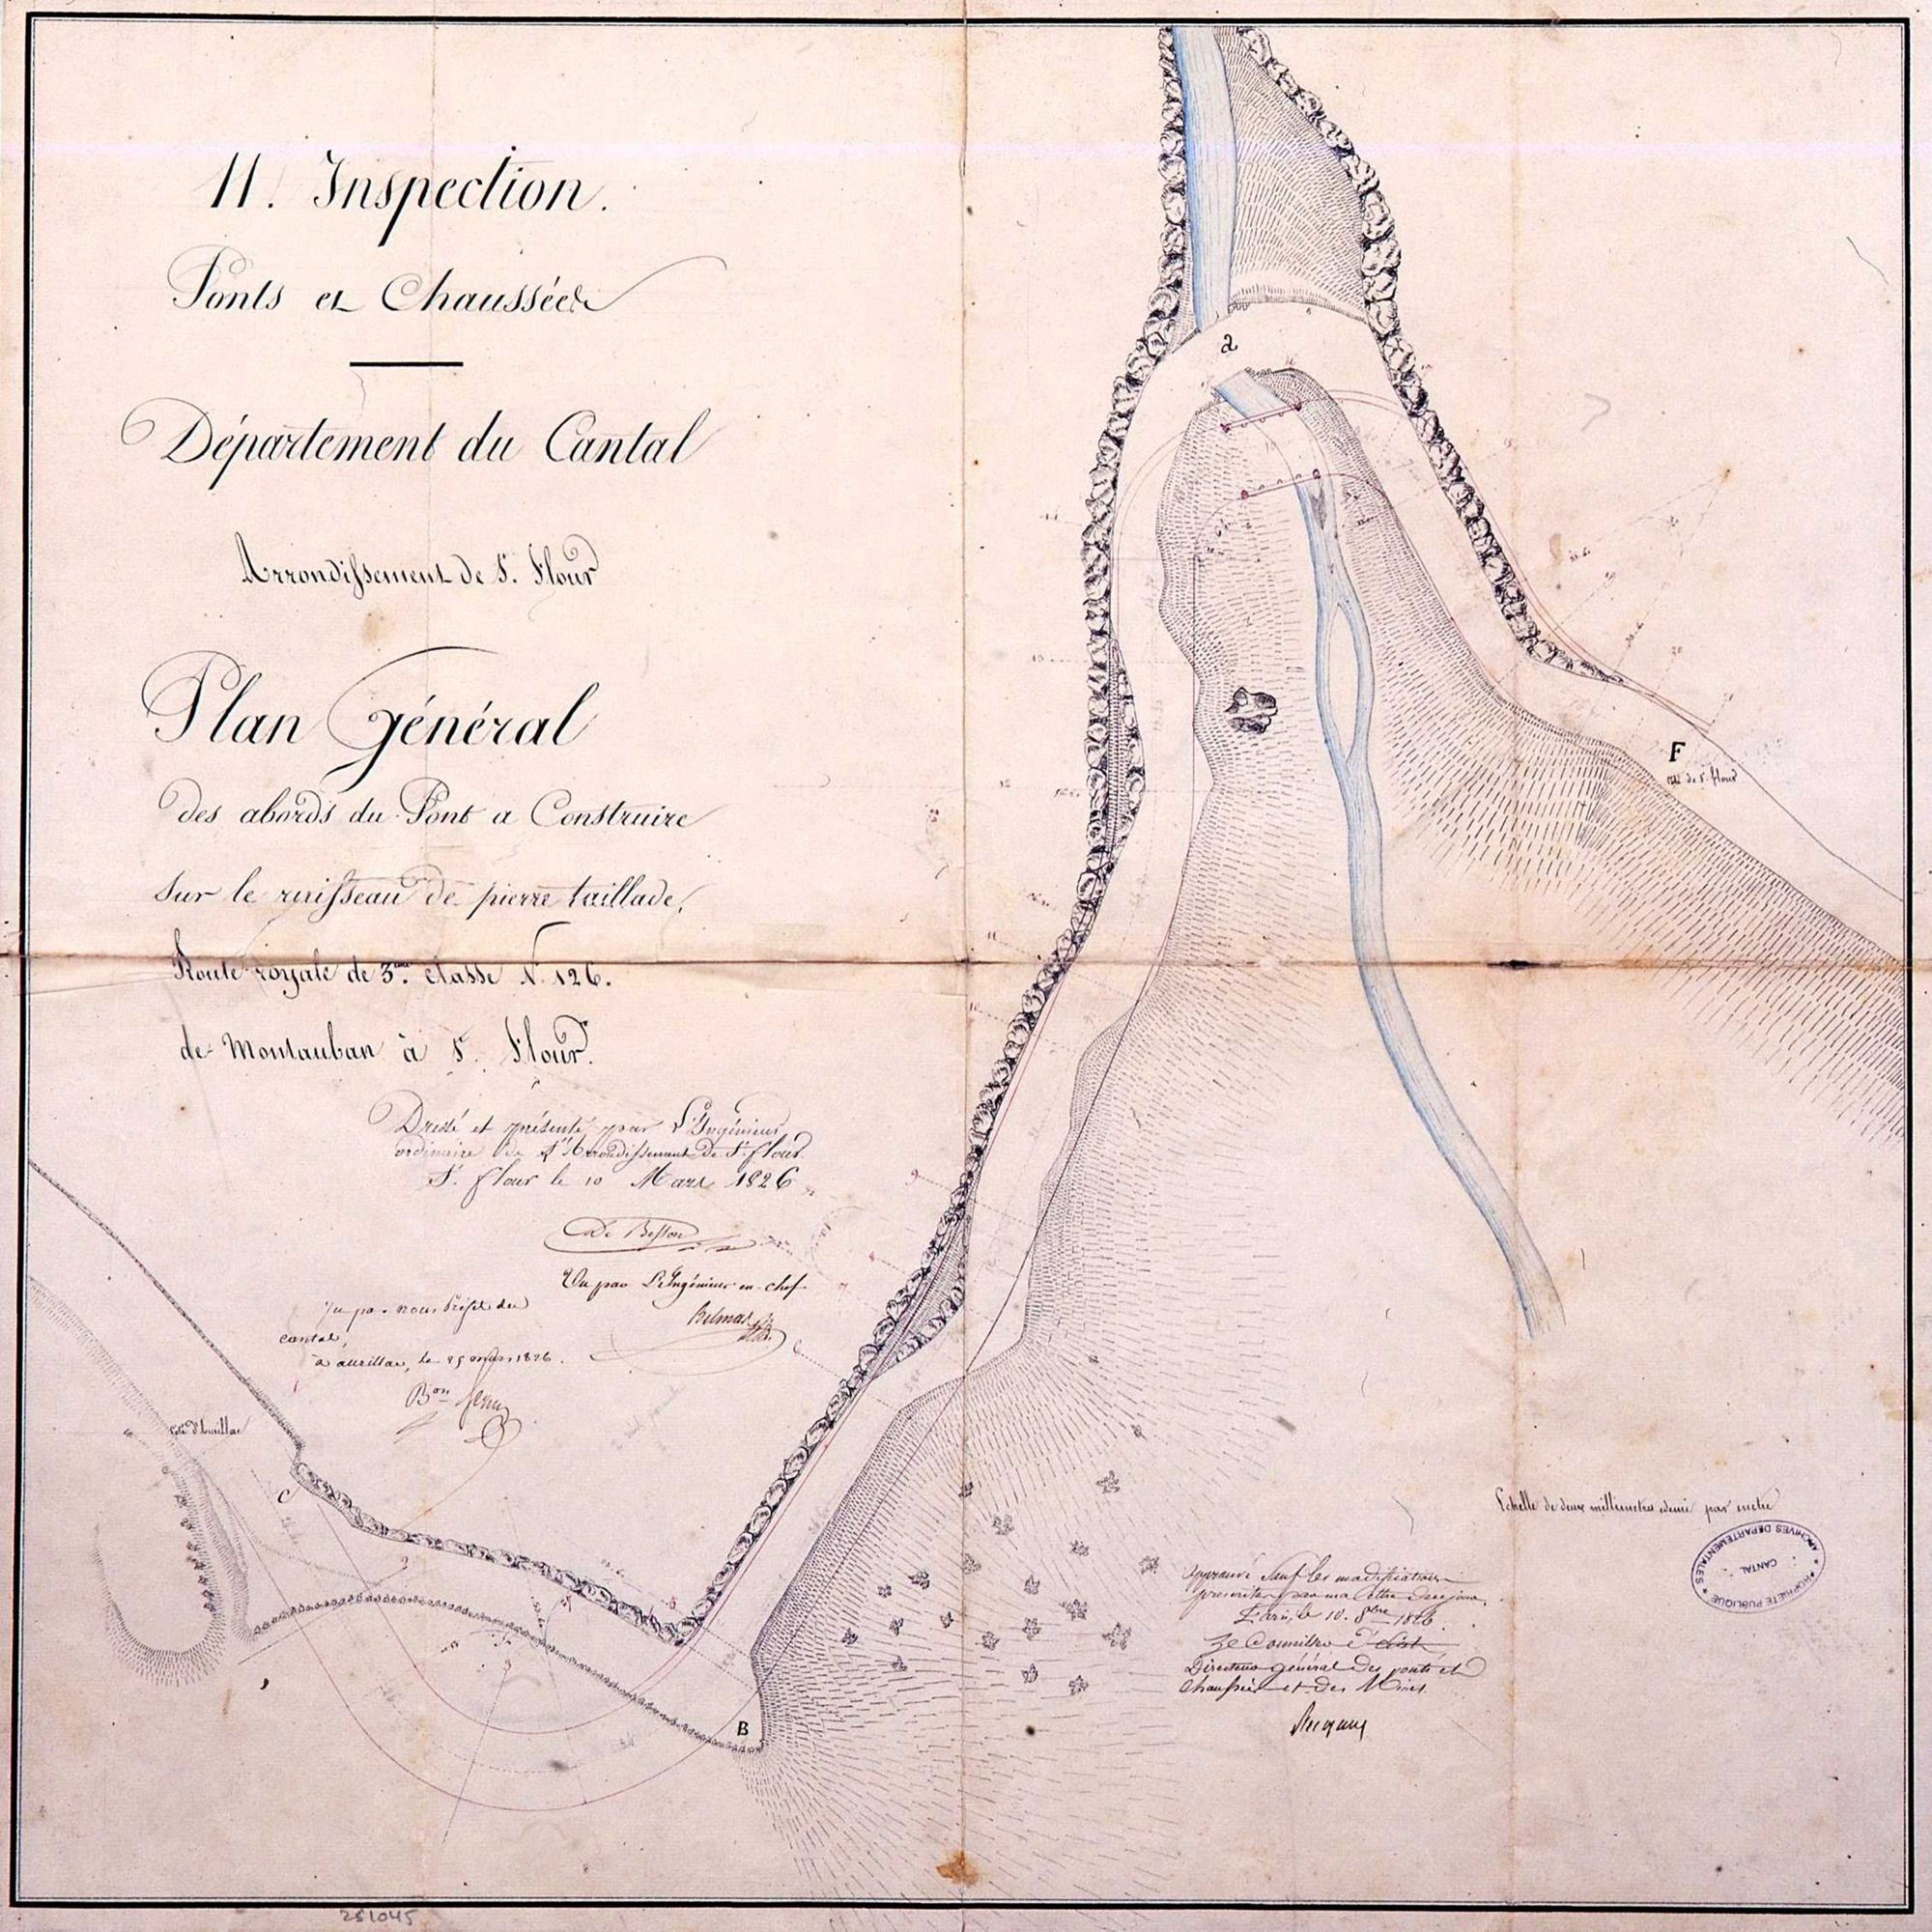 11. Inspection.
Ponts et Chaussées
Département du Cantal
Arrondissement de St. Flour
Plan Général
des abords du Pont a Construire
sur le ruisseau de pierre taillade,
Route royale de 3me. classe N. 126.
de Montauban à St. Flour.
Dressé et présenté par L'Ingénieur
ordinaire de l'Arrondissement de St. flour
St. flour le 10 Mars 1826
De Besson
Vu par L'Ingénieur en chef
Belmas
Vu par nous Préfet du
cantal,
à aurillac, le 25 mars 1826.
Bon
Coté d'Aurillac
C
B
a
F
Coté de St. flour
Echelle de deux millimetres demi par metre
PROPRIÉTÉ PUBLIQUE
ARCHIVES DÉPARTEMENTALES
CANTAL
approuvé sauf les modifications
prescrites par ma lettre de ce jour.
Paris, le 10. 8bre 1826.
Le Conseiller d'état
Directeur général des ponts et
chaussées et des Mines.
251045